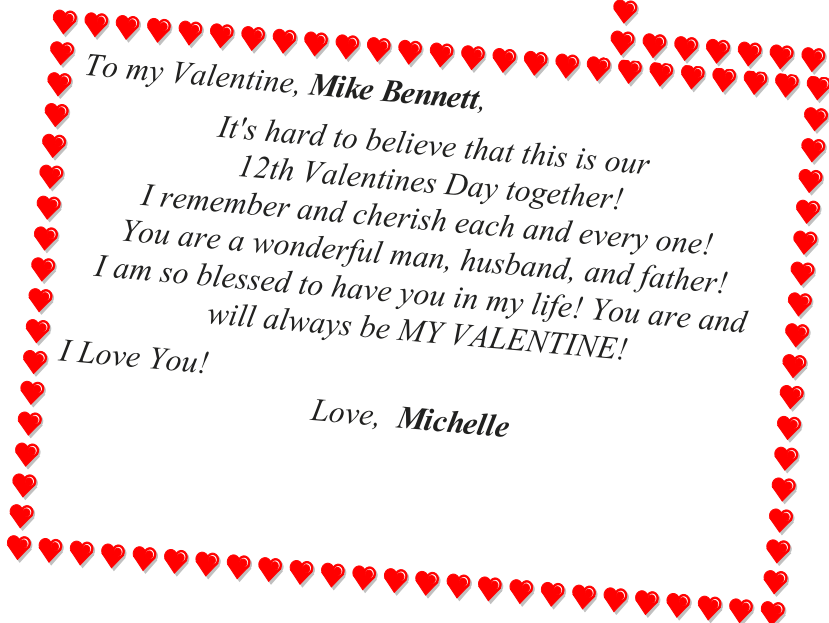 To my Valentine, Mike Bennett,
It's hard to believe that this is our
12th Valentines Day together!
I remember and cherish each and every one!
You are a wonderful man, husband, and father!
I am so blessed to have you in my life! You are and
will always be MY VALENTINE!
I Love You!
Love, Michelle